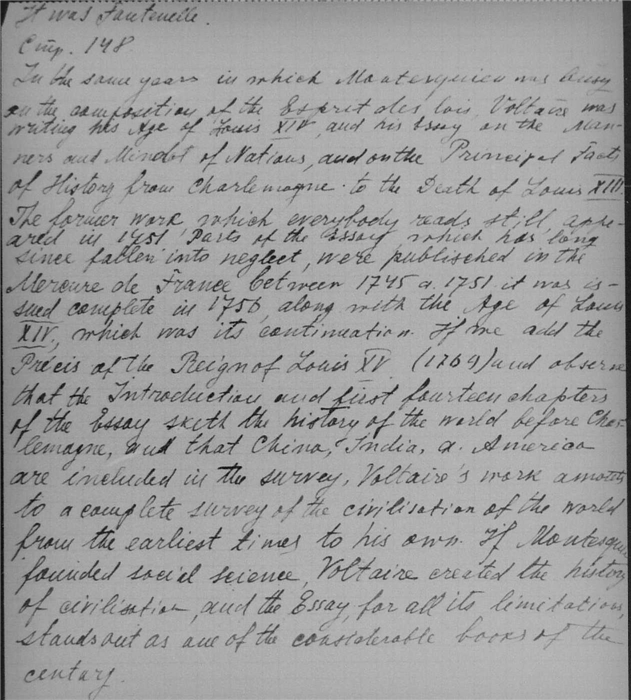 It was Fontenelle.
Стр. 148
In the same years in which Montesquieu was busy
on the composition of the Esprit des lois, Voltaire was
writing his Age of Louis XIV and his Essay on the Man-
ners and Mindot of Nations, and on the Principal Facts
of History from Charlemagne to the Death of Louis XIII.
The former work which everybody reads still appe-
ared in 1751. Parts of the Essay which has long
since fallen into neglect, were publisched in the
Mercure de France between 1745 a. 1751 it was is-
sued complete in 1756, along with the Age of Louis
XIV, which was its continuation. If we add the
Précis of the Reign of Louis XV (1769) and observe
that the Introduction and first fourteen chapters
of the Essay sketh the history of the world before Char-
lemagne, and that China, India, a. America
are included in the survey, Voltaire's work amounts
to a complete survey of the civilisation of the world
from the earliest times to his own. If Montesquieu
founded social science, Voltaire created the history
of civilisation, and the Essay, for all its limitations,
stands out as one of the considerable books of the
century.